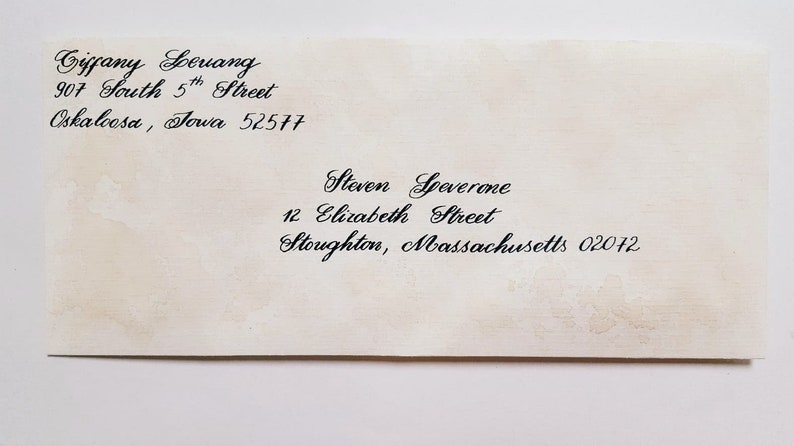 Tiffany Leuang
907 South 5th Street
Oskaloosa, Iowa 52577
Steven Leverone
12 Elizabeth Street
Stoughton, Massachusetts 02072